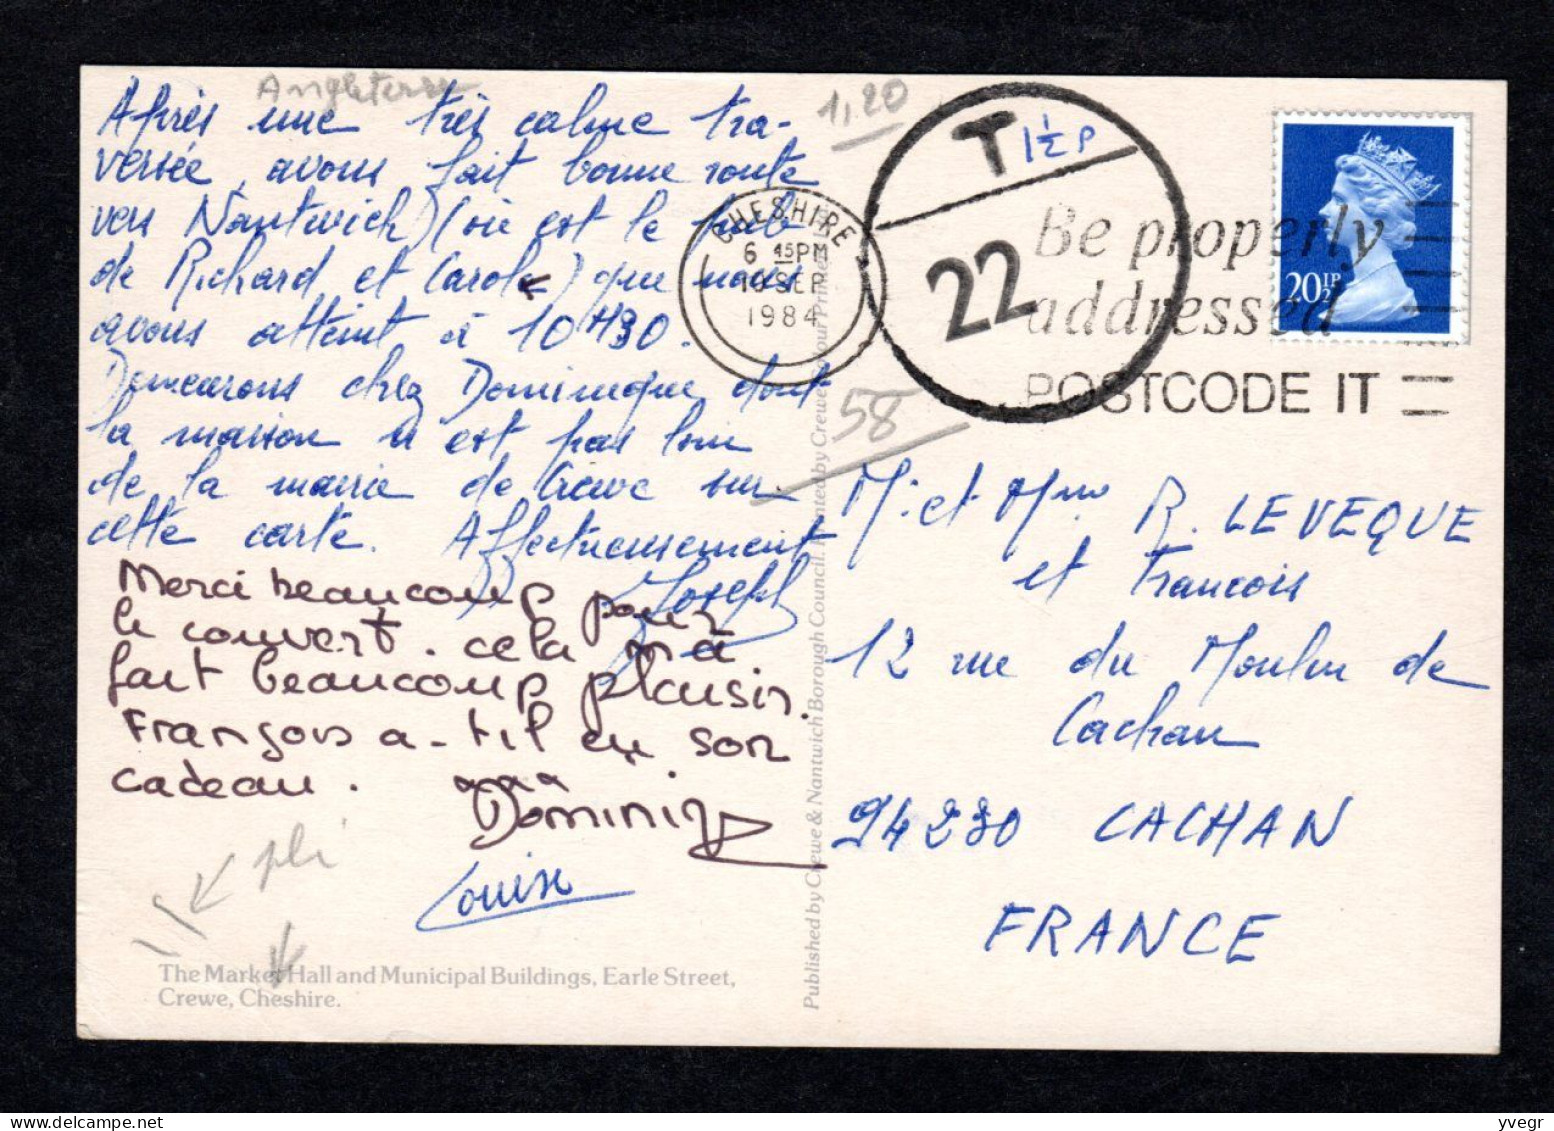 Angleterre
Après une très calme tra-
versée, avons fait bonne route
vers Nantwich (où est le pub
de Richard et Carole) que nous
avons atteint à 10H30.
Demeurons chez Dominique dont
la maison n'est pas loin
de la mairie de Crewe sur
cette carte. Affectueusement
Joseph
Merci beaucoup pour
le couvert. cela m'a
fait beaucoup plaisir.
François a-t-il eu son
cadeau.
Dominiq
Louise
pli
The Market Hall and Municipal Buildings, Earle Street,
Crewe, Cheshire.
Published by Crewe & Nantwich Borough Council. Printed by Crewe Colour Printers
1,20
58
CHESHIRE
6 45PM
10 SEP
1984
T 1½P
22
Be properly
addressed
POSTCODE IT
20½P
Mr et Mme R. LEVEQUE
et Francois
12 rue du Moulin de
Cachan
94230 CACHAN
FRANCE
yvegr